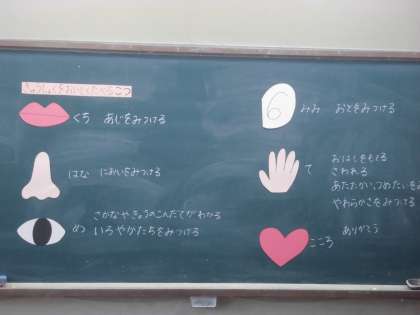 きゅうしょくをおいしくたべるこつ
くち あじをみつける
はな においをみつける
さかなやきょうのこんだてがわかる
め いろやかたちをみつける
みみ おとをみつける
て おはしをもてる
さわれる
あたたかい、つめたいを
やわらかさをみつける
こころ ありがとう